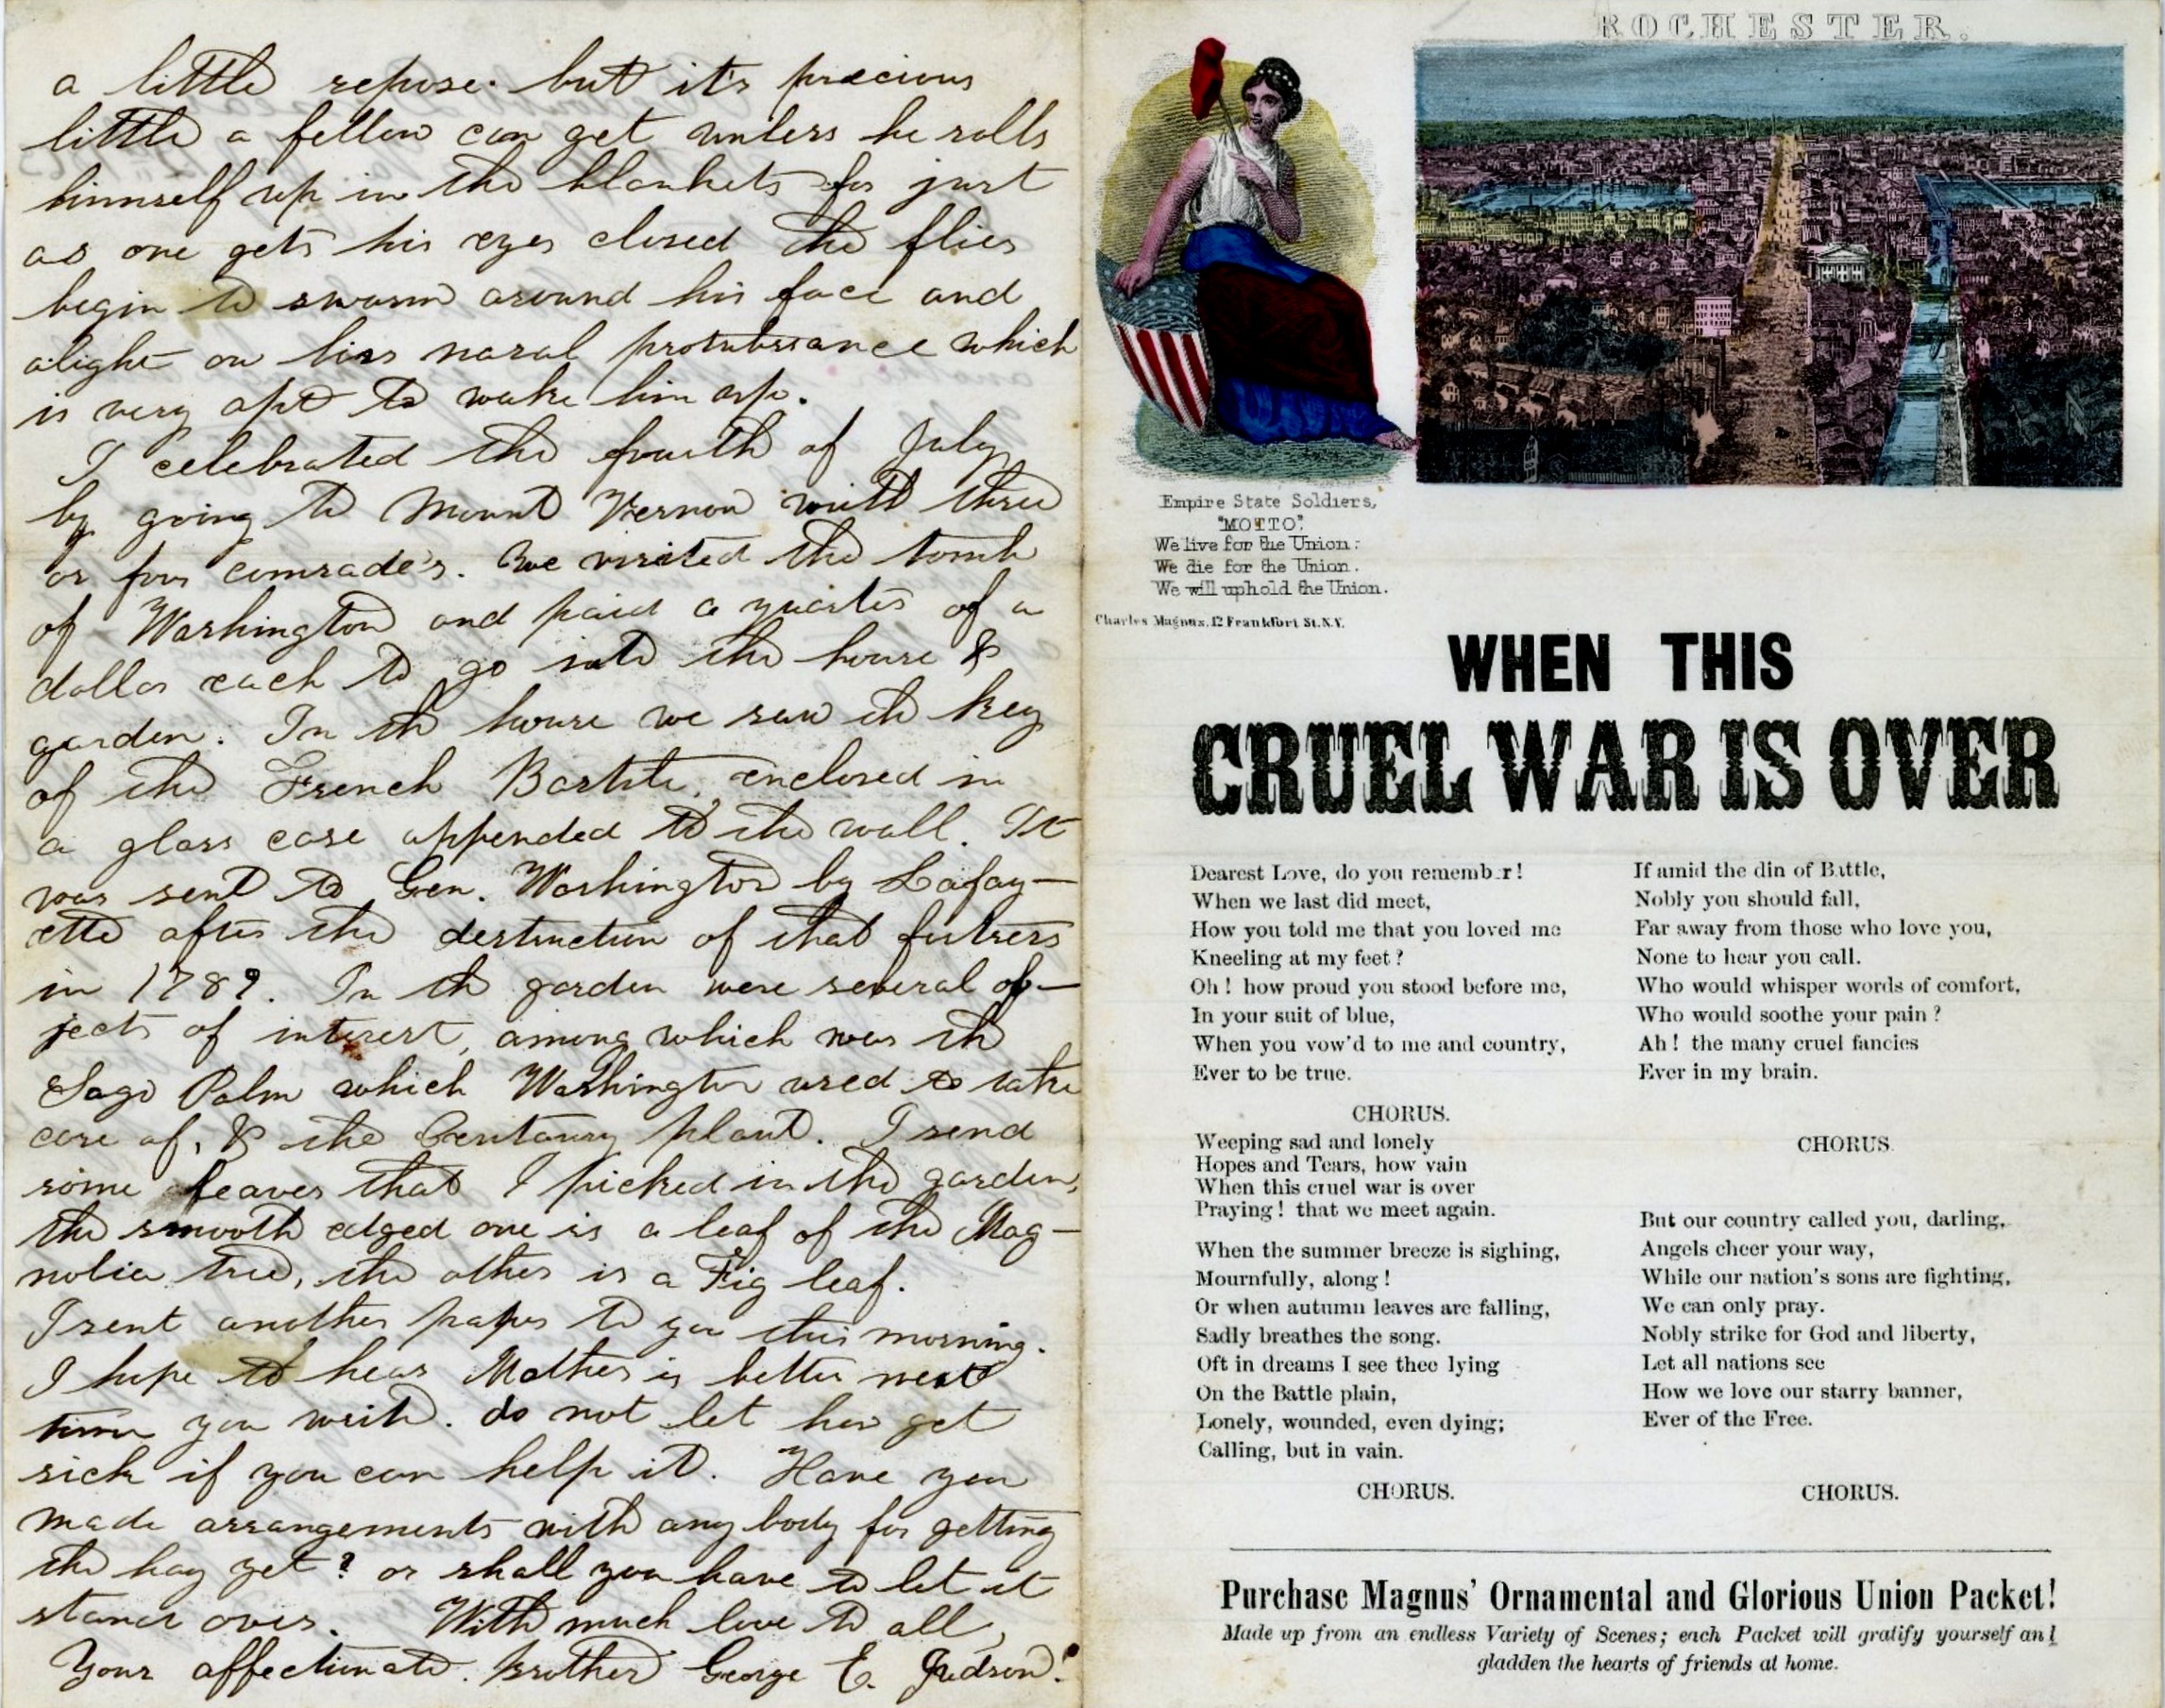 a little repose. but it's precious
little a fellow can get unless he rolls
himself up in the blankets for just
as one gets his eyes closed the flies
begin to swarm around his face and
alight on his nasal protuberance which
is very apt to wake him up.
I celebrated the fourth of July
by going to Mount Vernon with three
or four comrade's. We visited the tomb
of Washington and paid a quarter of a
dollar each to go into the house &
garden. In th house we saw th key
of the French Bastile, enclosed in
a glass case appended to the wall. It
was sent to Gen. Washington by Lafay-
ette after the destruction of that fortress
in 1789. In th garden were several ob-
jects of interest, among which was th
Sago Palm which Washington used to take
care of, & the Centaury plant. I send
some leaves that I picked in the garden,
the smooth edged one is a leaf of the Mag-
nolia tree, the other is a Fig leaf.
I sent another paper to you this morning.
I hope to hear Mother is better next
time you write. do not let her get
sick if you can help it. Have you
made arrangements with any body for getting
the hay yet? or shall you have to let it
stand over. With much love to all,
Your affectionate brother George E. Judson.
ROCHESTER.
Empire State Soldiers,
"MOTTO".
We live for the Union:
We die for the Union.
We will uphold the Union.
Charles Magnus, 12 Frankfort St. N.Y.
WHEN THIS
CRUEL WAR IS OVER
Dearest Love, do you rememb r!
When we last did meet,
How you told me that you loved me
Kneeling at my feet?
Oh! how proud you stood before me,
In your suit of blue,
When you vow'd to me and country,
Ever to be true.
CHORUS.
Weeping sad and lonely
Hopes and Tears, how vain
When this cruel war is over
Praying! that we meet again.
When the summer breeze is sighing,
Mournfully, along!
Or when autumn leaves are falling,
Sadly breathes the song.
Oft in dreams I see thee lying
On the Battle plain,
Lonely, wounded, even dying;
Calling, but in vain.
CHORUS.
If amid the din of Battle,
Nobly you should fall,
Far away from those who love you,
None to hear you call.
Who would whisper words of comfort,
Who would soothe your pain?
Ah! the many cruel fancies
Ever in my brain.
CHORUS.
But our country called you, darling,
Angels cheer your way,
While our nation's sons are fighting,
We can only pray.
Nobly strike for God and liberty,
Let all nations see
How we love our starry banner,
Ever of the Free.
CHORUS.
Purchase Magnus' Ornamental and Glorious Union Packet!
Made up from an endless Variety of Scenes; each Packet will gratify yourself and
gladden the hearts of friends at home.